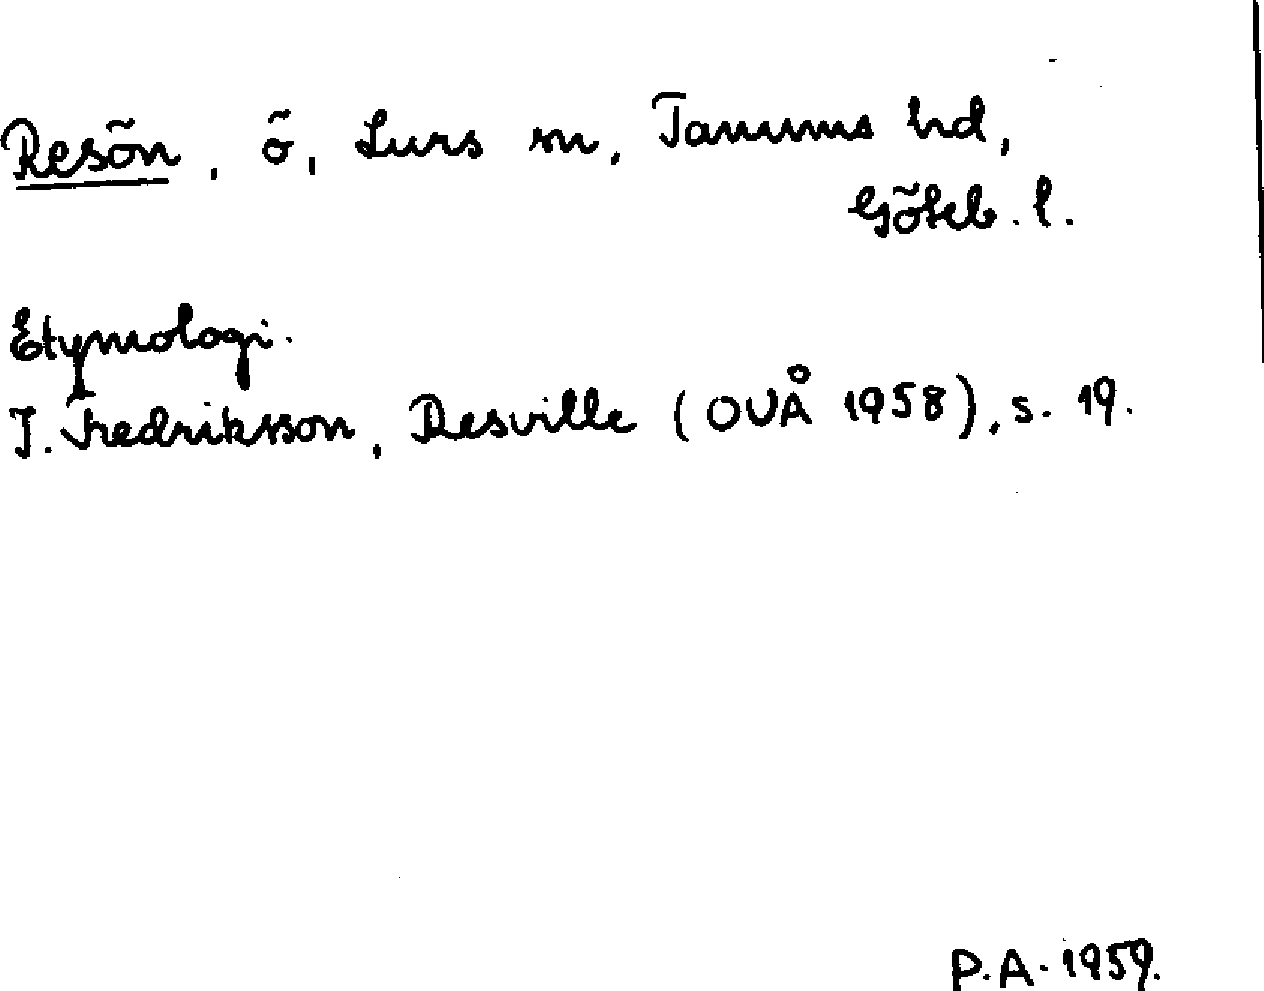 Resön, ö, Lurs sn, Tanums hd,
Göteb. l.
Etymologi.
I. Fredriksson, Resville (OUÅ 1958), s. 19.
P.A. 1959.